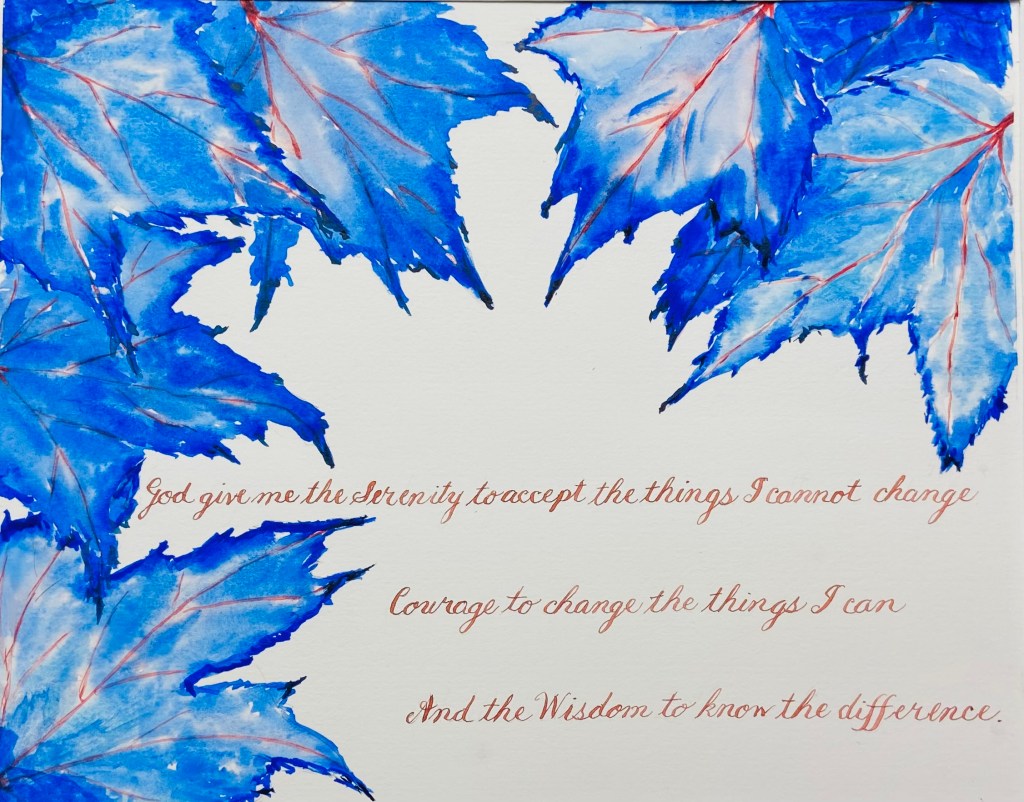 God give me the Serenity to accept the things I cannot change
Courage to change the things I can
And the Wisdom to know the difference.